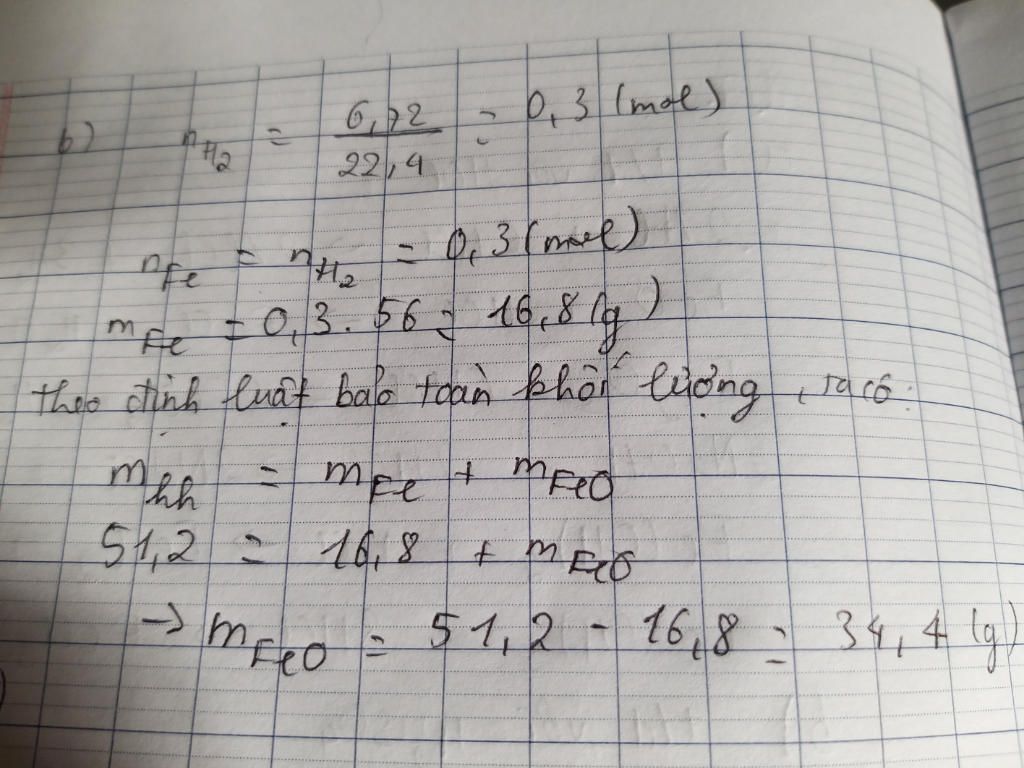 b) nH2 = 6,72 / 22,4 = 0,3 (mol)
nFe = nH2 = 0,3 (mol)
mFe = 0,3 . 56 = 16,8 (g)
theo định luật bảo toàn khối lượng, ta có:
mhh = mFe + mFeO
51,2 = 16,8 + mFeO
→ mFeO = 51,2 - 16,8 = 34,4 (g)